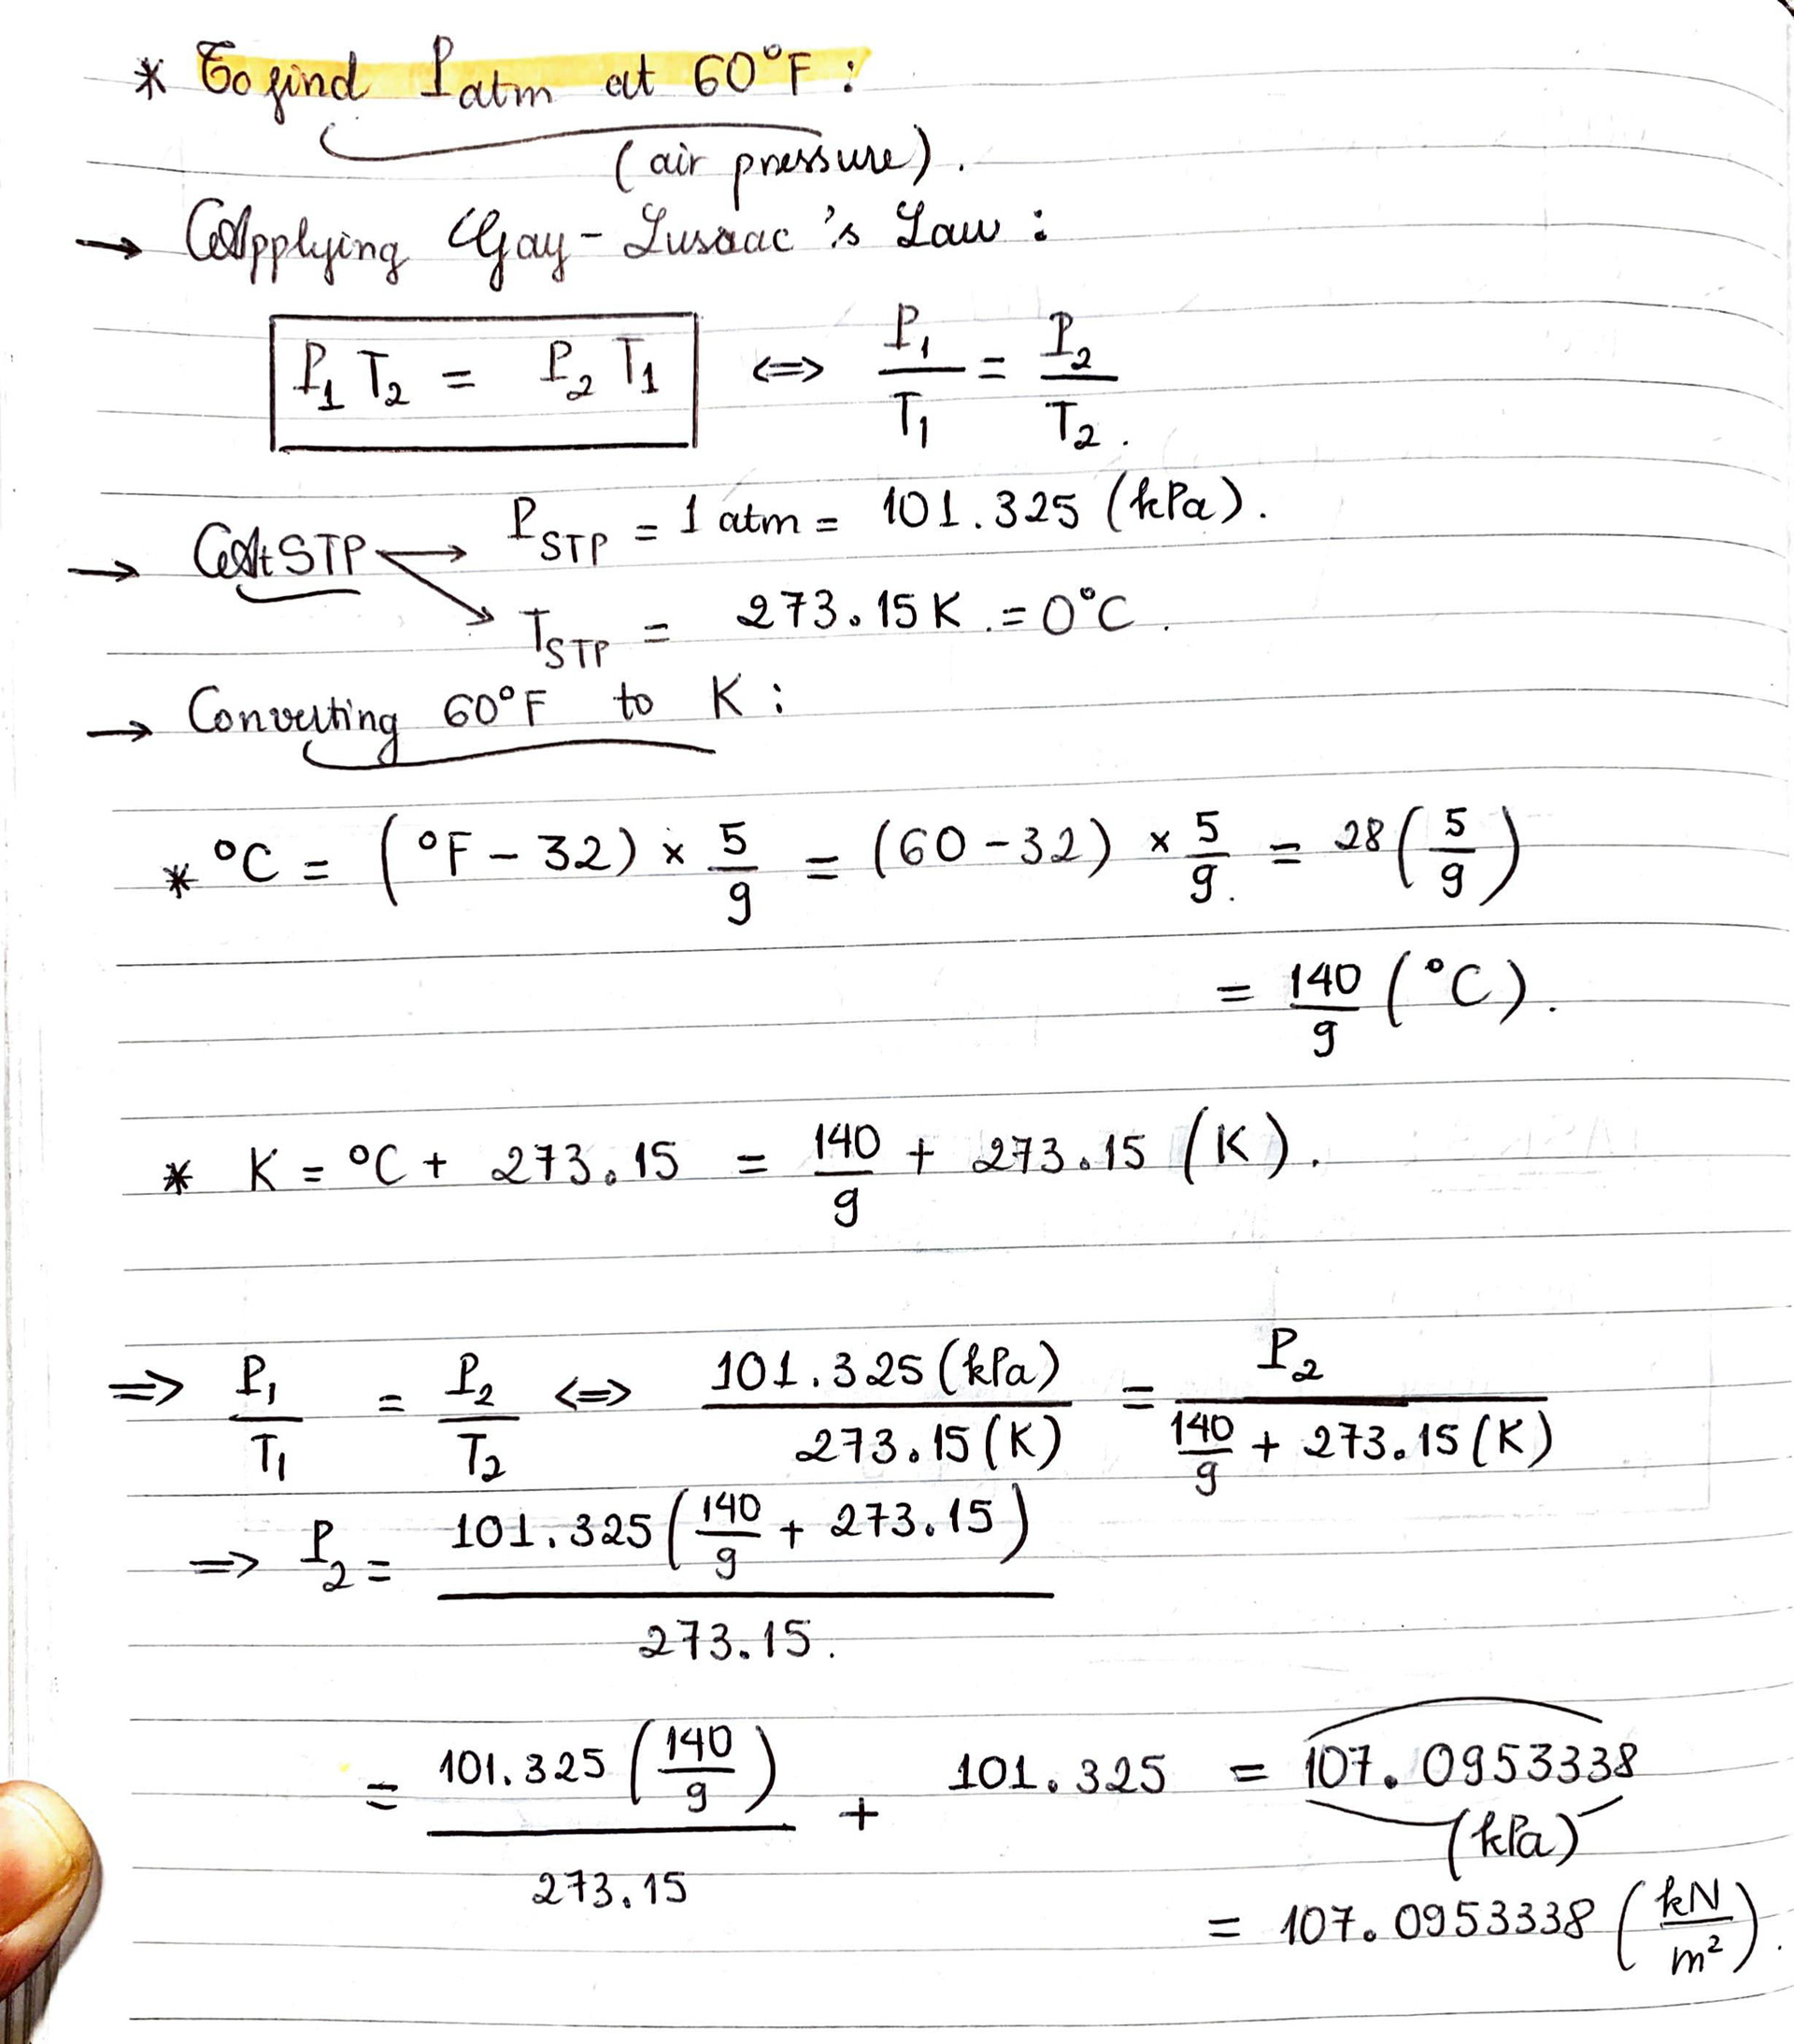 * To find Patm at 60°F :
(air pressure).
→ Applying Gay-Lusaac's Law :
P₁ T₂ = P₂ T₁ <=> P₁/T₁ = P₂/T₂.
→ At STP → P_STP = 1 atm = 101.325 (kPa).
↘ T_STP = 273.15 K . = 0°C .
→ Converting 60°F to K :
* °C = (°F - 32) × 5/9 = (60 - 32) × 5/9. = 28 (5/9)
= 140/9 (°C).
* K = °C + 273.15 = 140/9 + 273.15 (K).
=> P₁/T₁ = P₂/T₂ <=> 101.325 (kPa)/273.15 (K) = P₂/(140/9 + 273.15 (K))
=> P₂ = 101.325 (140/9 + 273.15)/273.15.
= 101.325 (140/9)/273.15 + 101.325 = 107.0953338
(kPa)
= 107.0953338 (kN/m²).